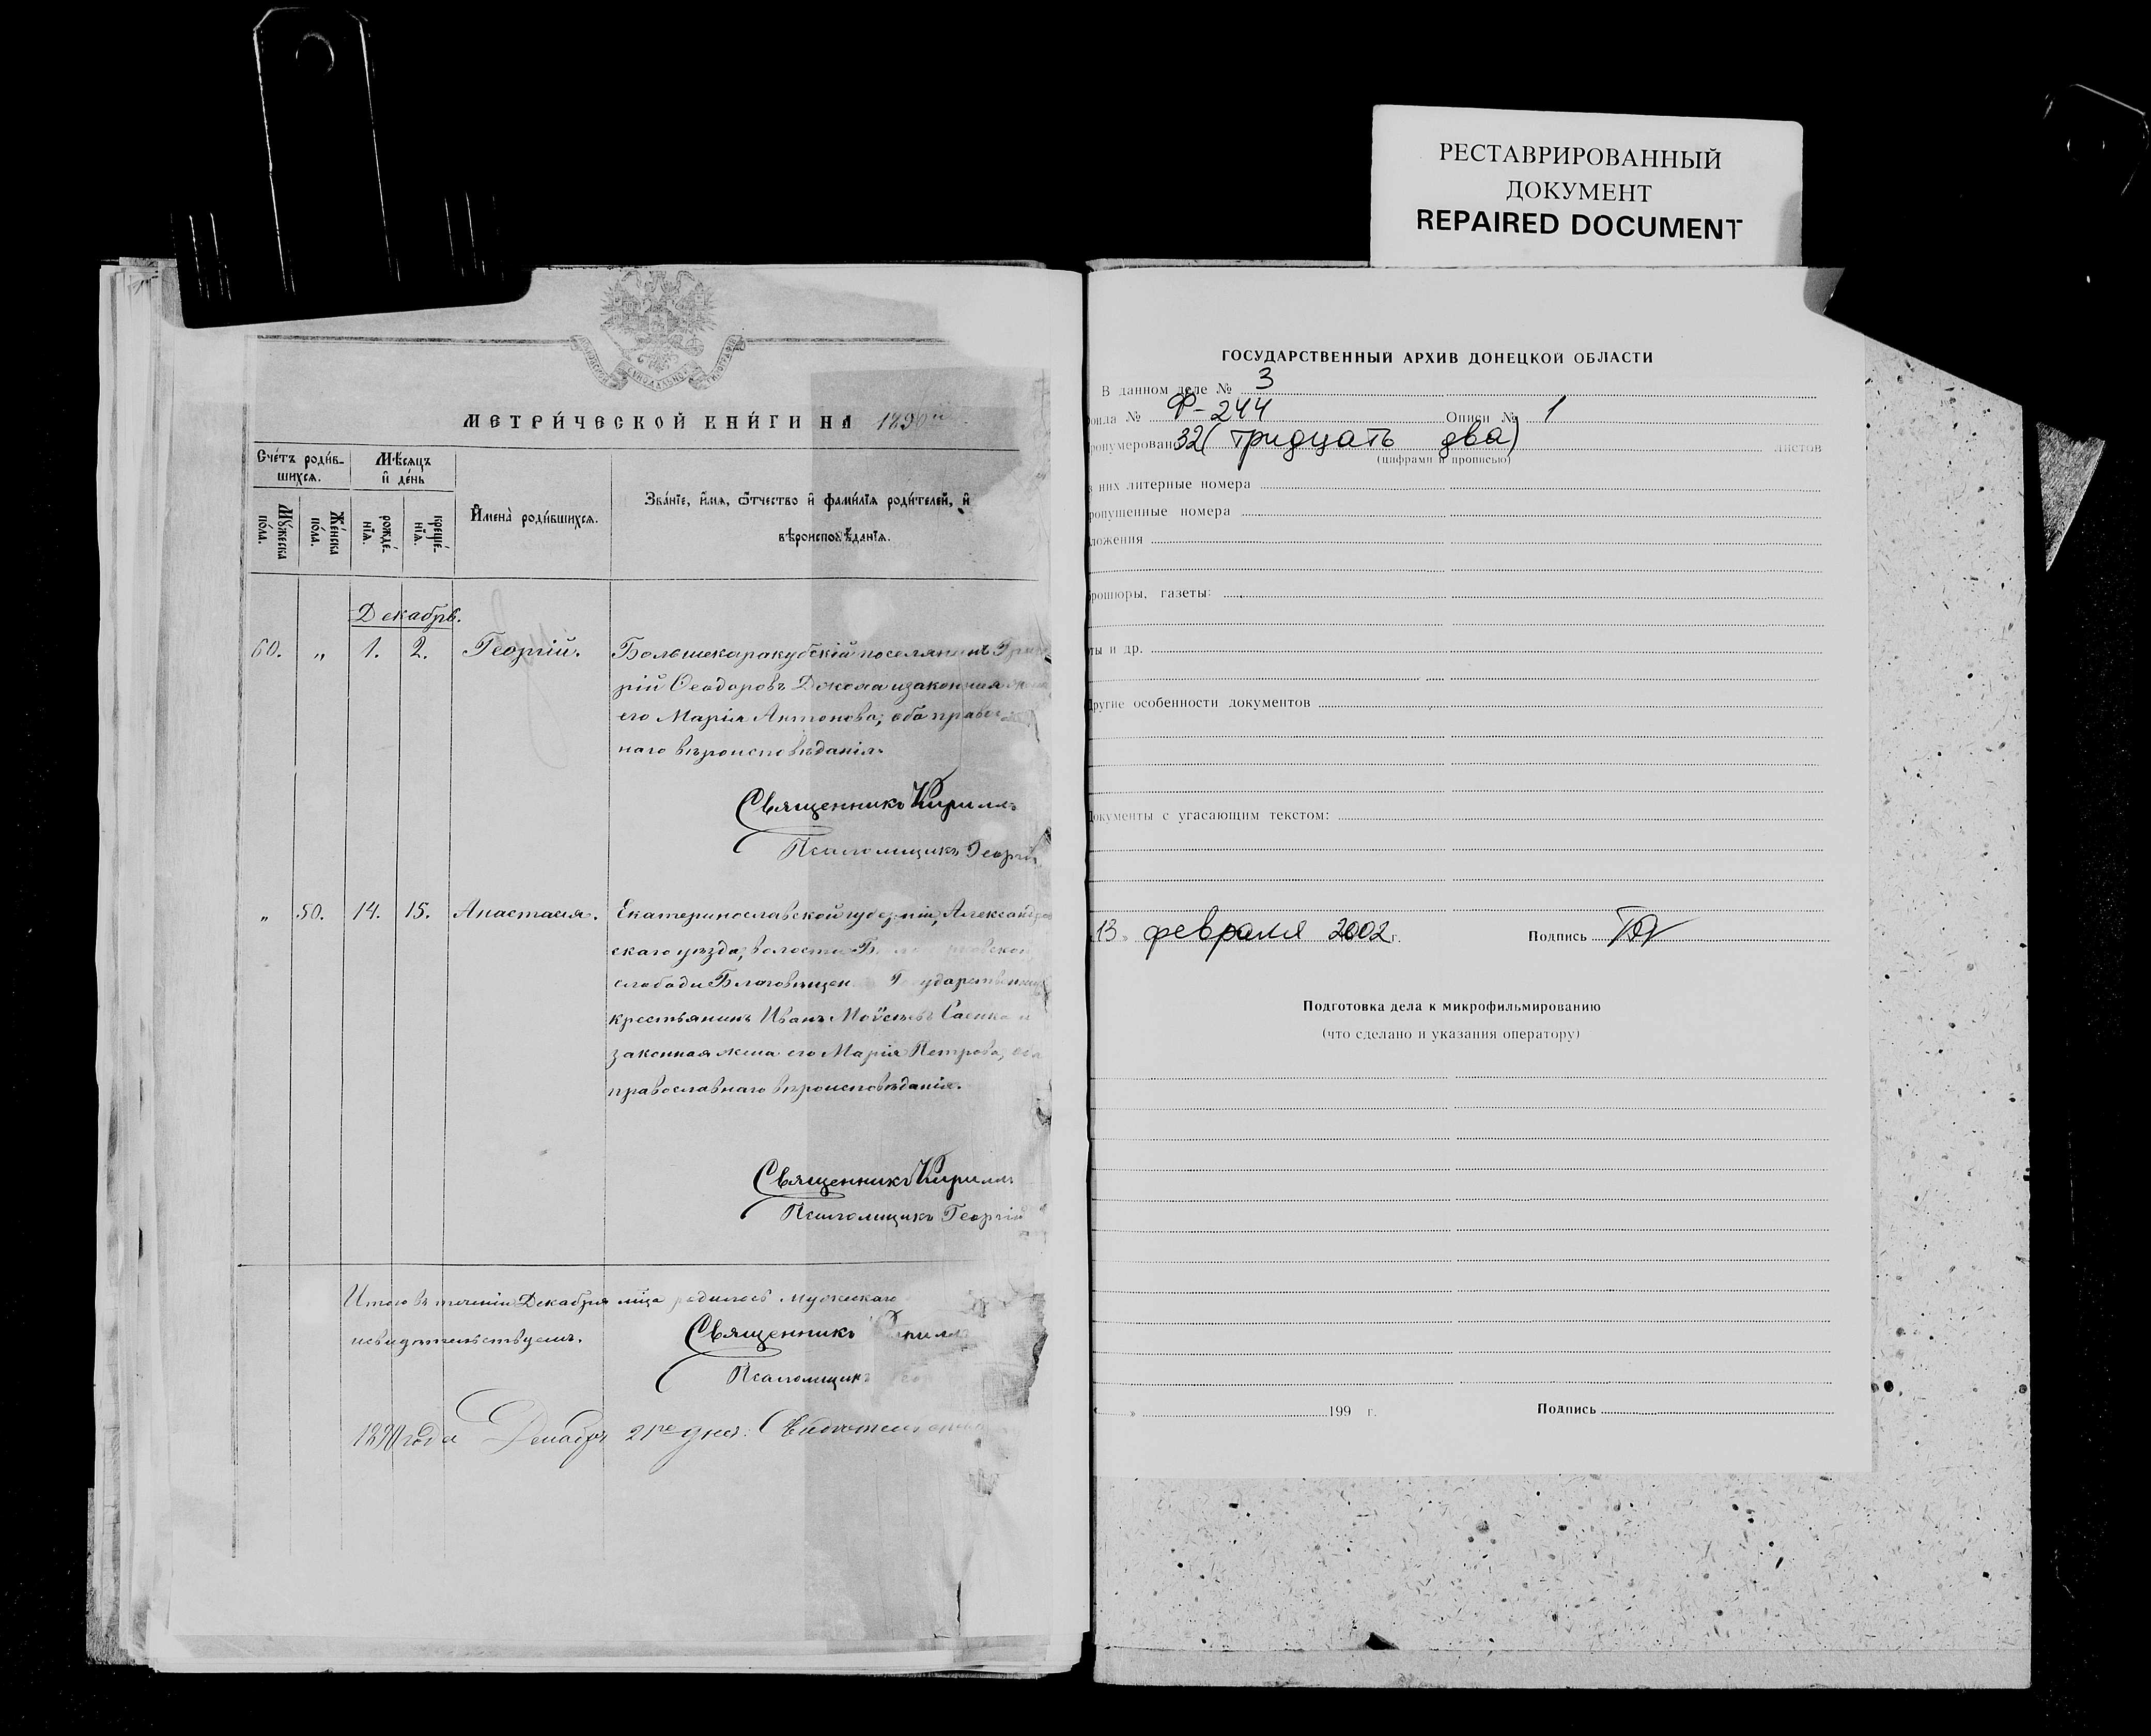 РЕСТАВРИРОВАННЫЙ
ДОКУМЕНТ
REPAIRED DOCUMENT
МЕТРИ́ЧЕСКОЙ КНИ́ГИ НА 1890й
Сче́тъ роди́в-
шихсѧ.
Мѣ́сѧцъ
и҆ де́нь
И҆мена̀ роди́вшихсѧ.
Зва́нїе, и҆́мѧ, ѻ҆́тчество и҆ фами́лїѧ роди́телей, и҆
вѣроисповѣ́данїѧ.
Мꙋ́жеска
по́ла.
Же́нска
по́ла.
рожде́-
нїѧ.
креще́-
нїѧ.
Декабрь.
60. „ 1. 2. Георгій. Большекаракубскій поселянинъ Григо
рій Ѳеодоровъ и законная жена
его Марія Антонова; оба правос
наго вѣроисповѣданія.
Священникъ Кириллъ
Псаломщикъ Георгій
„ 50. 14. 15. Анастасія. Екатеринославской губерніи, Александров
скаго уѣзда, волости
слободи Благовѣщен Государственный
крестьянинъ Иванъ Моѵсѣевъ Саенко и
законная жена его Марія Петрова, оба
православнаго вѣроисповѣданія.
Священникъ Кириллъ
Псаломщикъ Георгій
Итого въ теченіи Декабря мѣсяца родилось мужскаго
Священникъ Кириллъ
Псаломщикъ
1890 года Декабря 21го дня.
ГОСУДАРСТВЕННЫЙ АРХИВ ДОНЕЦКОЙ ОБЛАСТИ
В данном деле № 3
онда № Ф-244 Описи № 1
ронумеровано 32 (тридцать два) листов
(цифрами и прописью)
з них литерные номера
ропущенные номера
ложения
рошюры, газеты:
ты и др.
Другие особенности документов
Документы с угасающим текстом:
13 » февраля 2002 г. Подпись
Подготовка дела к микрофильмированию
(что сделано и указания оператору)
» 199 г. Подпись